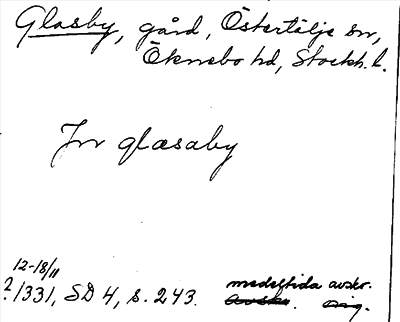 Glasby, gård, Östertälje sn,
Öknebo hd, Stockh. l.
Jn glæsaby
12-18/11
?1331, SD 4, s. 243. medeltida avskr.
avskr. orig.